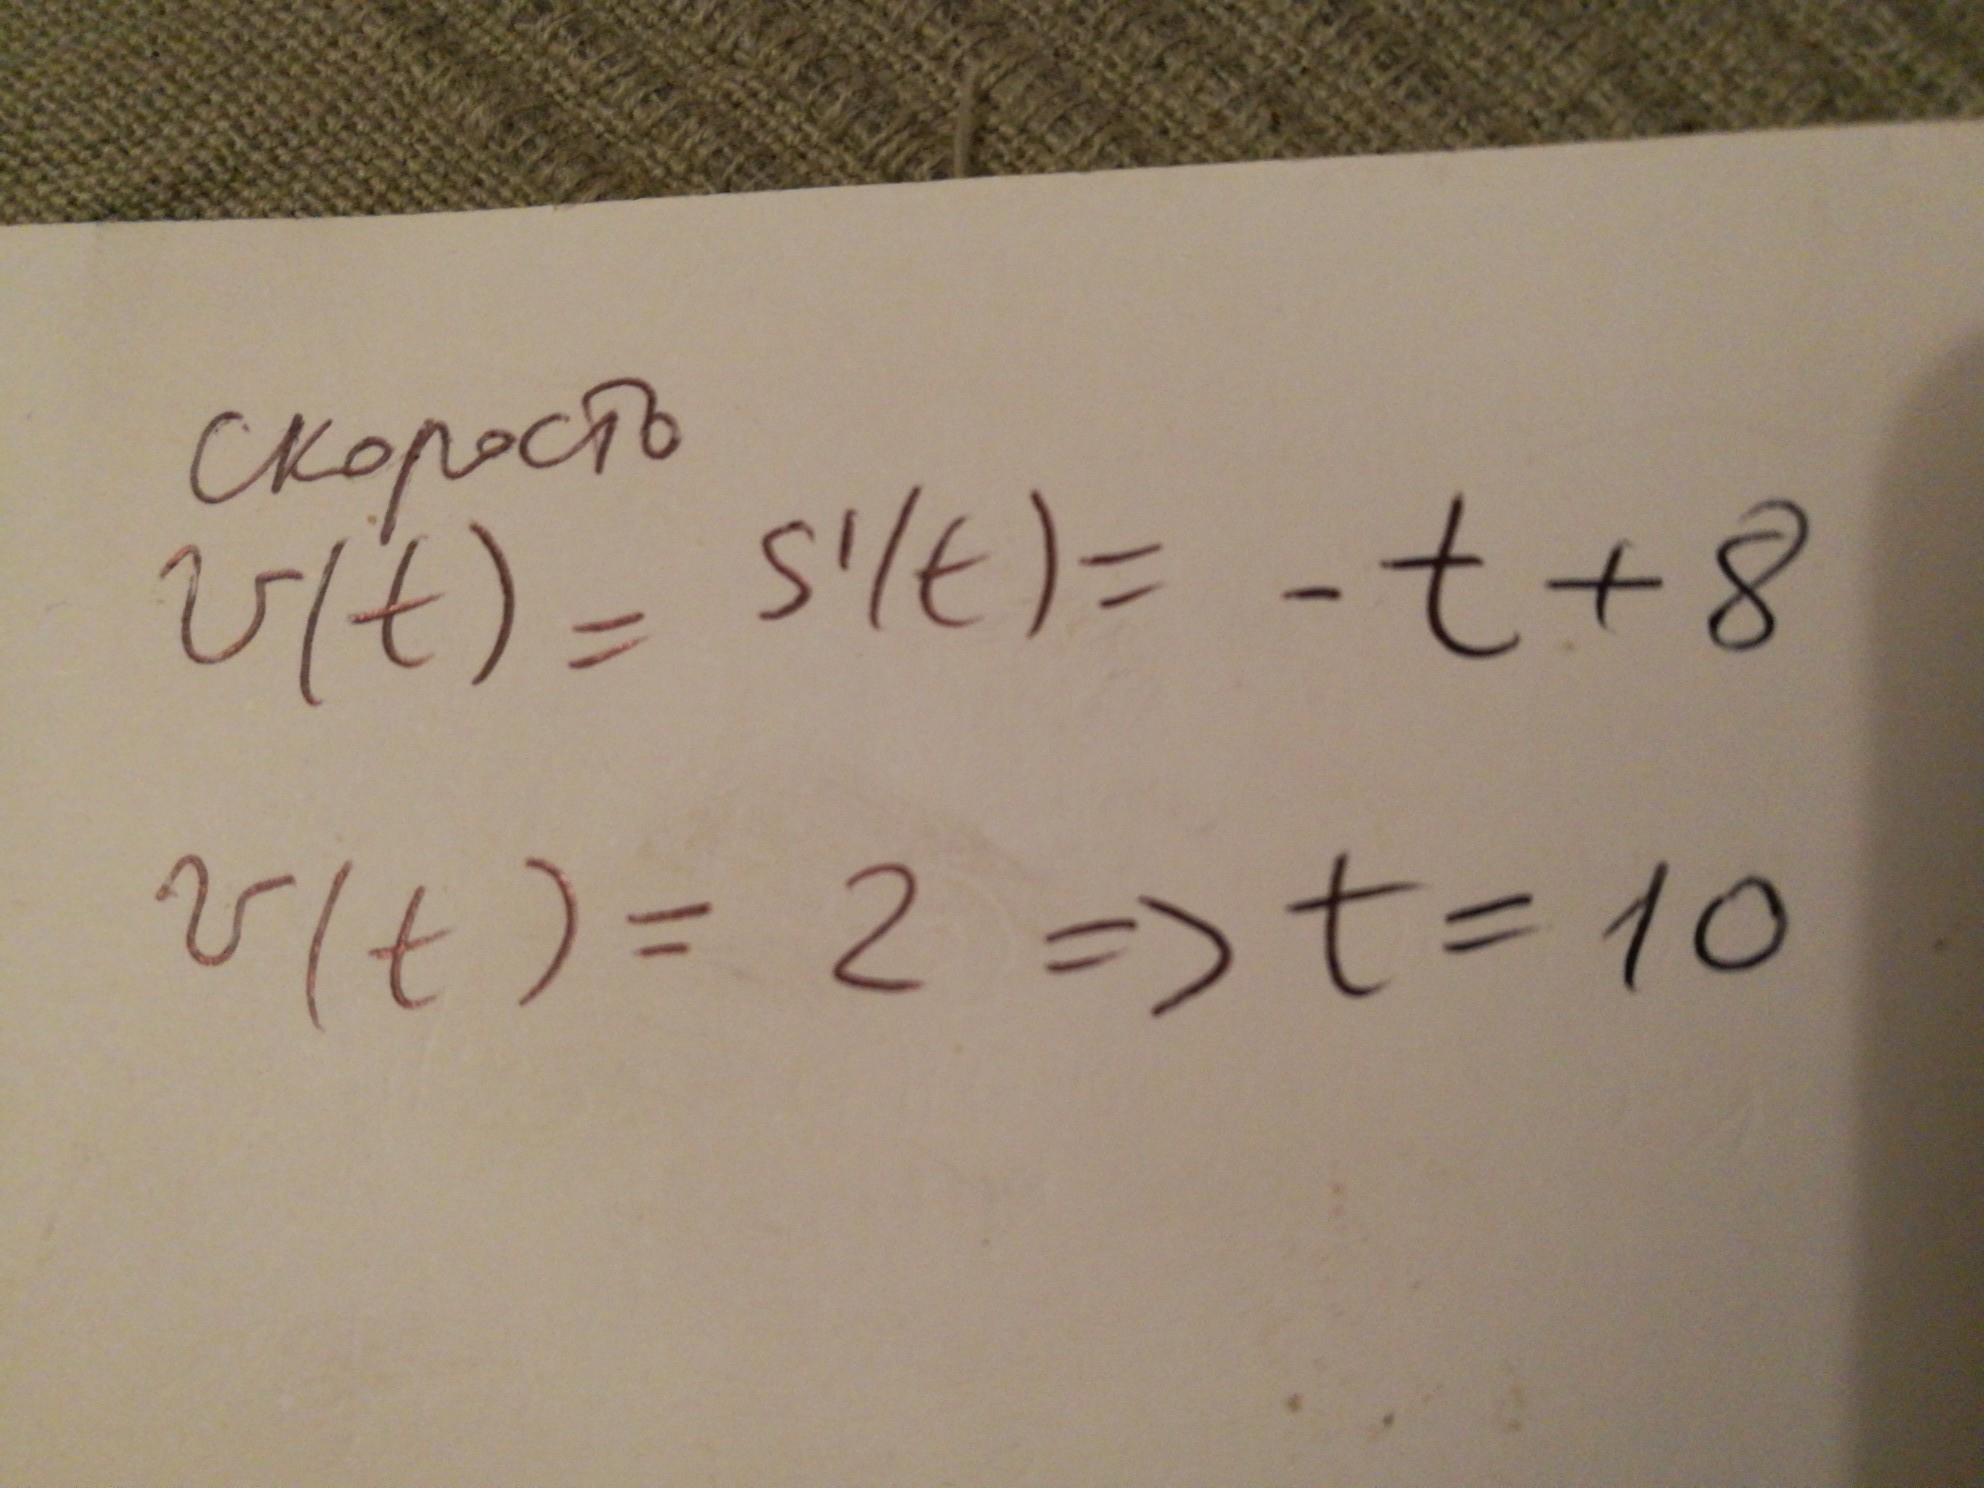 скорость
v(t) = s'(t) = -t+8
v(t) = 2 => t = 10